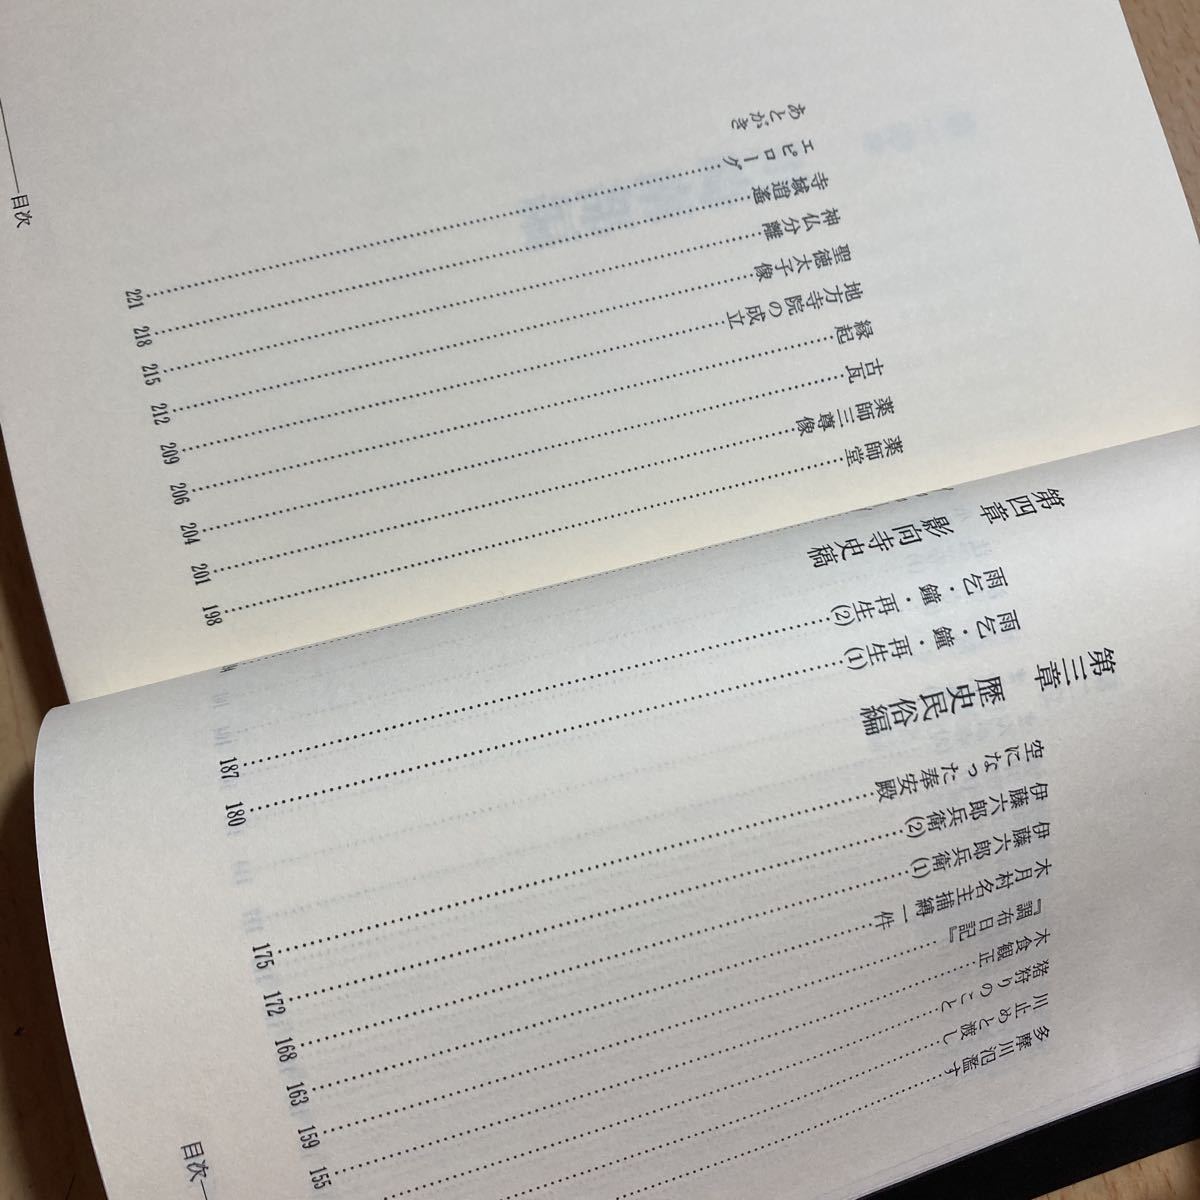 多摩川氾濫す
川止めと渡し
猪狩りのこと
木食観正……155
『調布日記』……159
木月村名主捕縛一件……163
伊藤六郎兵衛(1)……168
伊藤六郎兵衛(2)……172
空になった奉安殿……175
第三章 歴史民俗編
雨乞・鐘・再生(1)……180
雨乞・鐘・再生(2)……187
第四章 影向寺史稿
目次
薬師堂……198
薬師三尊像……201
古瓦……204
縁起……206
地方寺院の成立……209
聖徳太子像……212
神仏分離……215
寺域逍遙……218
エピローグ……221
あとがき
目次